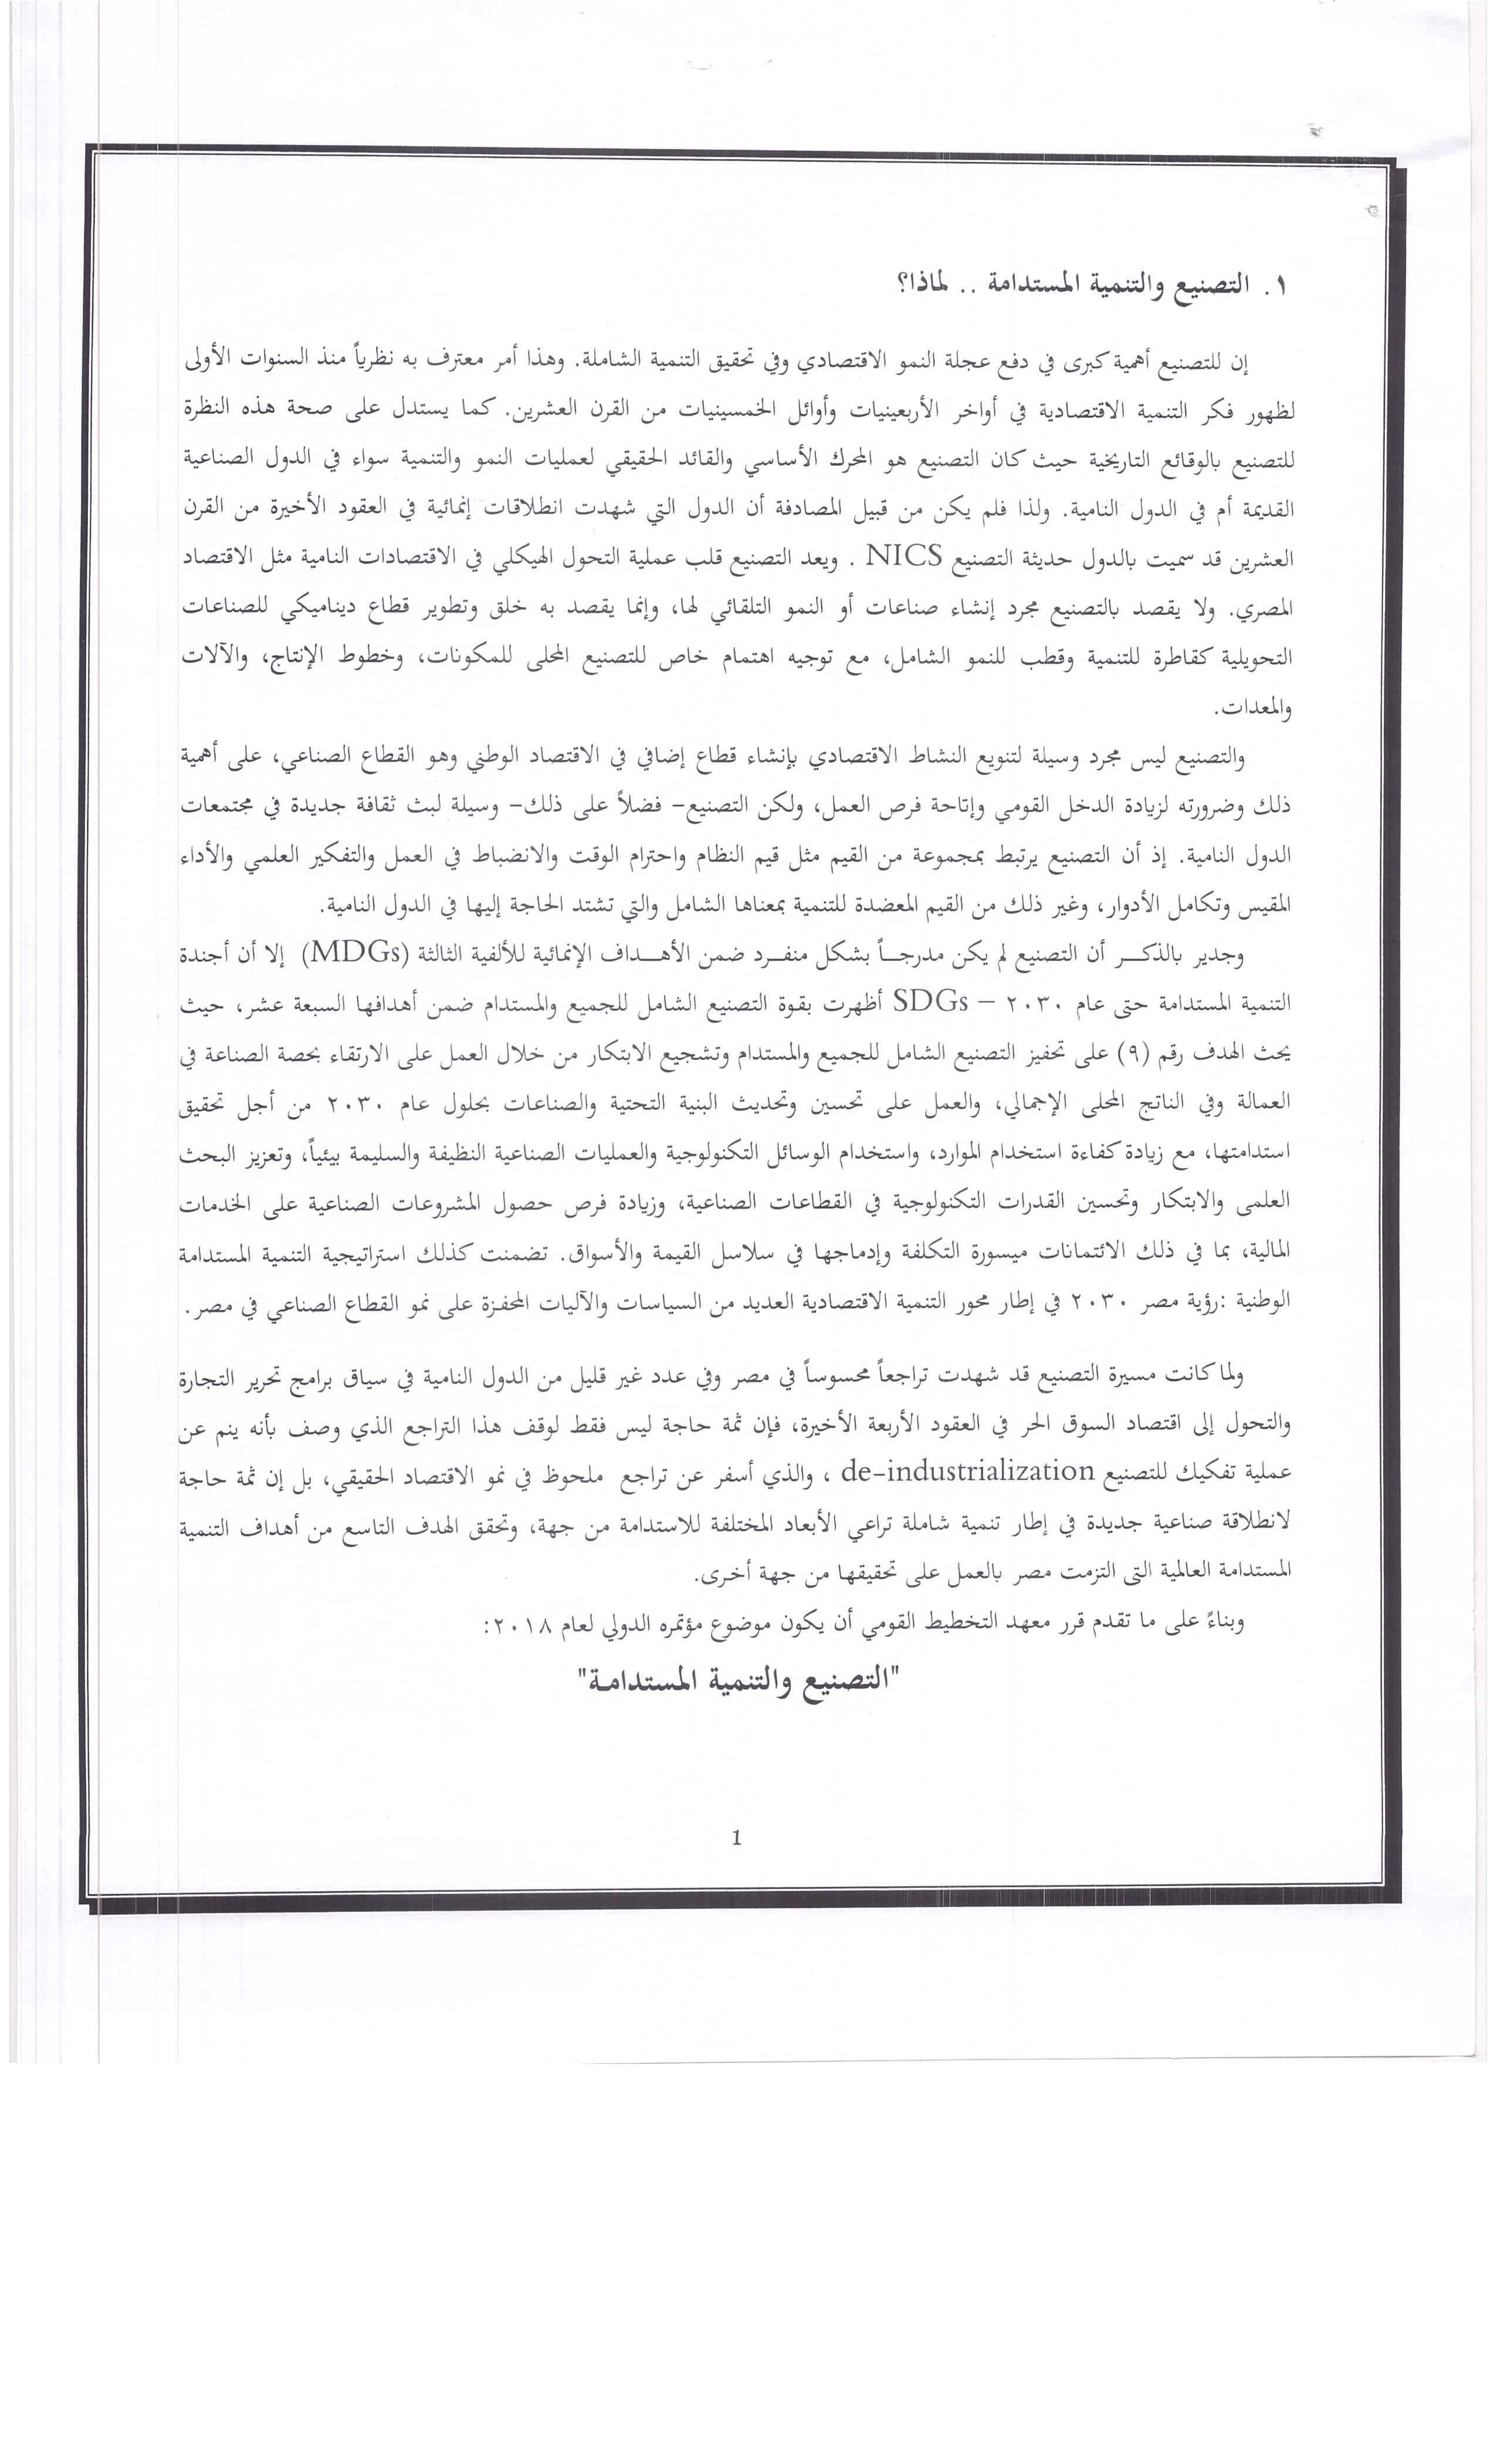 ١. التصنيع والتنمية المستدامة .. لماذا؟
إن للتصنيع أهمية كبرى في دفع عجلة النمو الاقتصادي وفي تحقيق التنمية الشاملة. وهذا أمر معترف به نظرياً منذ السنوات الأولى
لظهور فكر التنمية الاقتصادية في أواخر الأربعينيات وأوائل الخمسينيات من القرن العشرين. كما يستدل على صحة هذه النظرة
للتصنيع بالوقائع التاريخية حيث كان التصنيع هو المحرك الأساسي والقائد الحقيقي لعمليات النمو والتنمية سواء في الدول الصناعية
القديمة أم في الدول النامية. ولذا فلم يكن من قبيل المصادفة أن الدول التي شهدت انطلاقات إنمائية في العقود الأخيرة من القرن
العشرين قد سميت بالدول حديثة التصنيع NICS . ويعد التصنيع قلب عملية التحول الهيكلي في الاقتصادات النامية مثل الاقتصاد
المصري. ولا يقصد بالتصنيع مجرد إنشاء صناعات أو النمو التلقائي لها، وإنما يقصد به خلق وتطوير قطاع ديناميكي للصناعات
التحويلية كقاطرة للتنمية وقطب للنمو الشامل، مع توجيه اهتمام خاص للتصنيع المحلى للمكونات، وخطوط الإنتاج، والآلات
والمعدات.
والتصنيع ليس مجرد وسيلة لتنويع النشاط الاقتصادي بإنشاء قطاع إضافي في الاقتصاد الوطني وهو القطاع الصناعي، على أهمية
ذلك وضرورته لزيادة الدخل القومي وإتاحة فرص العمل، ولكن التصنيع- فضلاً على ذلك- وسيلة لبث ثقافة جديدة في مجتمعات
الدول النامية. إذ أن التصنيع يرتبط بمجموعة من القيم مثل قيم النظام واحترام الوقت والانضباط في العمل والتفكير العلمي والأداء
المقيس وتكامل الأدوار، وغير ذلك من القيم المعضدة للتنمية بمعناها الشامل والتي تشتد الحاجة إليها في الدول النامية.
وجدير بالذكــر أن التصنيع لم يكن مدرجــاً بشكل منفــرد ضمن الأهــداف الإنمائية للألفية الثالثة (MDGs) إلا أن أجندة
التنمية المستدامة حتى عام ٢٠٣٠ – SDGs أظهرت بقوة التصنيع الشامل للجميع والمستدام ضمن أهدافها السبعة عشر، حيث
يحث الهدف رقم (٩) على تحفيز التصنيع الشامل للجميع والمستدام وتشجيع الابتكار من خلال العمل على الارتقاء بحصة الصناعة في
العمالة وفي الناتج المحلى الإجمالي، والعمل على تحسين وتحديث البنية التحتية والصناعات بحلول عام ٢٠٣٠ من أجل تحقيق
استدامتها، مع زيادة كفاءة استخدام الموارد، واستخدام الوسائل التكنولوجية والعمليات الصناعية النظيفة والسليمة بيئياً، وتعزيز البحث
العلمى والابتكار وتحسين القدرات التكنولوجية في القطاعات الصناعية، وزيادة فرص حصول المشروعات الصناعية على الخدمات
المالية، بما في ذلك الائتمانات ميسورة التكلفة وإدماجها في سلاسل القيمة والأسواق. تضمنت كذلك استراتيجية التنمية المستدامة
الوطنية :رؤية مصر ٢٠٣٠ في إطار محور التنمية الاقتصادية العديد من السياسات والآليات المحفزة على نمو القطاع الصناعي في مصر.
ولما كانت مسيرة التصنيع قد شهدت تراجعاً محسوساً في مصر وفي عدد غير قليل من الدول النامية في سياق برامج تحرير التجارة
والتحول إلى اقتصاد السوق الحر في العقود الأربعة الأخيرة، فإن ثمة حاجة ليس فقط لوقف هذا التراجع الذي وصف بأنه ينم عن
عملية تفكيك للتصنيع de-industrialization ، والذي أسفر عن تراجع ملحوظ في نمو الاقتصاد الحقيقي، بل إن ثمة حاجة
لانطلاقة صناعية جديدة في إطار تنمية شاملة تراعي الأبعاد المختلفة للاستدامة من جهة، وتحقق الهدف التاسع من أهداف التنمية
المستدامة العالمية التى التزمت مصر بالعمل على تحقيقها من جهة أخرى.
وبناءً على ما تقدم قرر معهد التخطيط القومي أن يكون موضوع مؤتمره الدولي لعام ٢٠١٨:
"التصنيع والتنمية المستدامة"
1